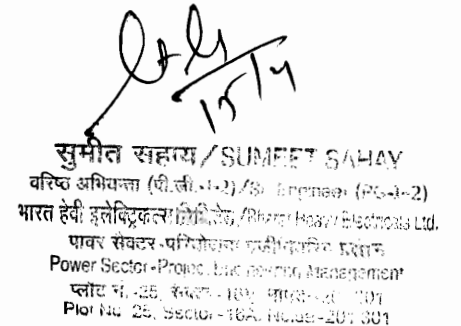 15/4
सुमीत सहाय/SUMEET SAHAY
वरिष्ठ अभियन्ता (पी.सी.-1-2)/Sr. Engineer (PG-1-2)
भारत हेवी इलेक्ट्रिकल्स लिमिटेड/Bharat Heavy Electricals Ltd.
पावर सेक्टर-परियोजना
Power Sector-Project Engineering Management
प्लॉट नं.-25, सेक्टर-16ए,
Plot No 25, Sector-16A, Noida-201 301